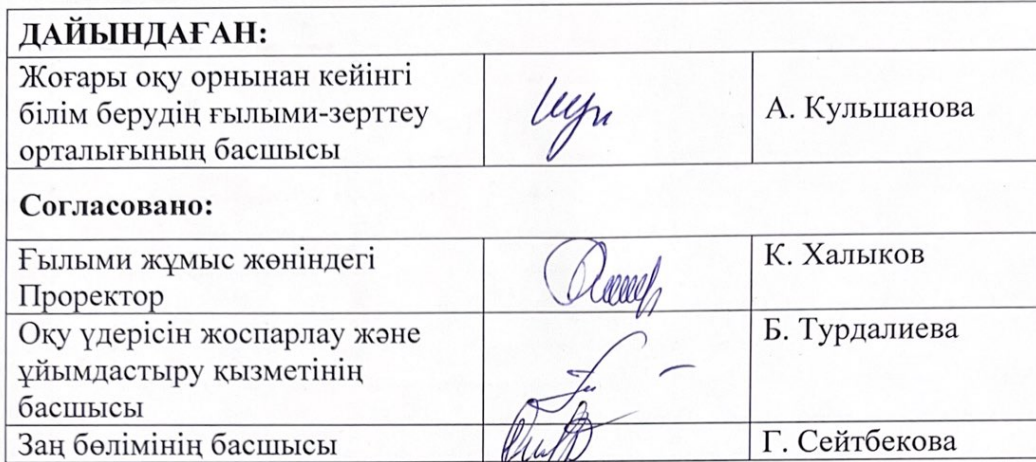 ДАЙЫНДАҒАН:
Жоғары оқу орнынан кейінгі
білім берудің ғылыми-зерттеу
орталығының басшысы
А. Кульшанова
Согласовано:
Ғылыми жұмыс жөніндегі
Проректор
К. Халыков
Оқу үдерісін жоспарлау және
ұйымдастыру қызметінің
басшысы
Б. Турдалиева
Заң бөлімінің басшысы
Г. Сейтбекова